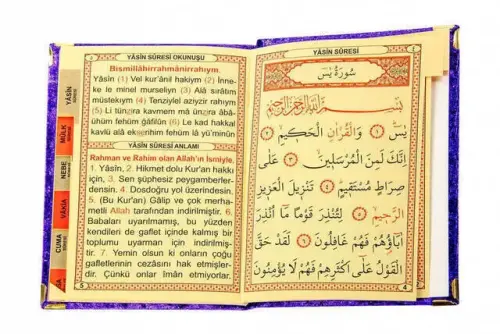 YÂSÎN SÛRESİ OKUNUŞU
Bismillâhirrahmânirrahıym.
Yâsîn (1) Vel kur'ânil hakiym (2) İnne-
ke le minel murseliyn (3) Alâ sırâtım
müstekıym (4) Tenziylel aziyzir rahıym
(5) Li tünzira kavmem mâ ünzira âbâ-
ühüm fehüm ğâfilûn (6) Le kad hakkal
kavlü alâ ekserihim fehüm lâ yü'minûn
YÂSÎN SÛRESİ ANLAMI
Rahman ve Rahim olan Allah'ın İsmiyle.
1. Yâsîn. 2. Hikmet dolu Kur'an hakkı
için, 3. Sen şüphesiz peygamberler-
densin. 4. Dosdoğru yol üzerindesin.
5. (Bu Kur'an) Gâlip ve çok merha-
metli Allah tarafından indirilmiştir. 6.
Babaları uyarılmamış, bu yüzden
kendileri de gaflet içinde kalmış bir
toplumu uyarman için indirilmiş-
tir. 7. Yemin olsun ki onların çoğu
gafletlerinin cezasını hak etmişler-
dir. Çünkü onlar iman etmiyorlar.
5
YÂSİN
SÛRESİ
MÜLK
NEBE
VÂKIA
CUMA
YÂSÎN SÛRESİ
سُورَةُ يٰسٓ
بِسْمِ اللّٰهِ الرَّحْمٰنِ الرَّحِيمِ
يٰسٓ ﴿١﴾ وَالْقُرْاٰنِ الْحَكِيمِ ﴿٢﴾
اِنَّكَ لَمِنَ الْمُرْسَلِينَ ﴿٣﴾ عَلٰى
صِرَاطٍ مُسْتَقِيمٍ ﴿٤﴾ تَنْزِيلَ الْعَزِيزِ
الرَّحِيمِ ﴿٥﴾ لِتُنْذِرَ قَوْمًا مَٓا اُنْذِرَ
اٰبَٓاؤُ۬هُمْ فَهُمْ غَافِلُونَ ﴿٦﴾ لَقَدْ حَقَّ
الْقَوْلُ عَلٰٓى اَكْثَرِهِمْ فَهُمْ لَا يُؤْمِنُونَ
4